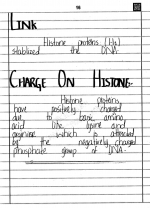 98
LINK
Histone proteins (H1)
stablized the DNA.
CHARGE ON HISTONE-
Histone proteins
have positively charged
due to basic amino
acid like lysine and
arginine which is attracted
by the negatively charged
phosphate group of DNA.